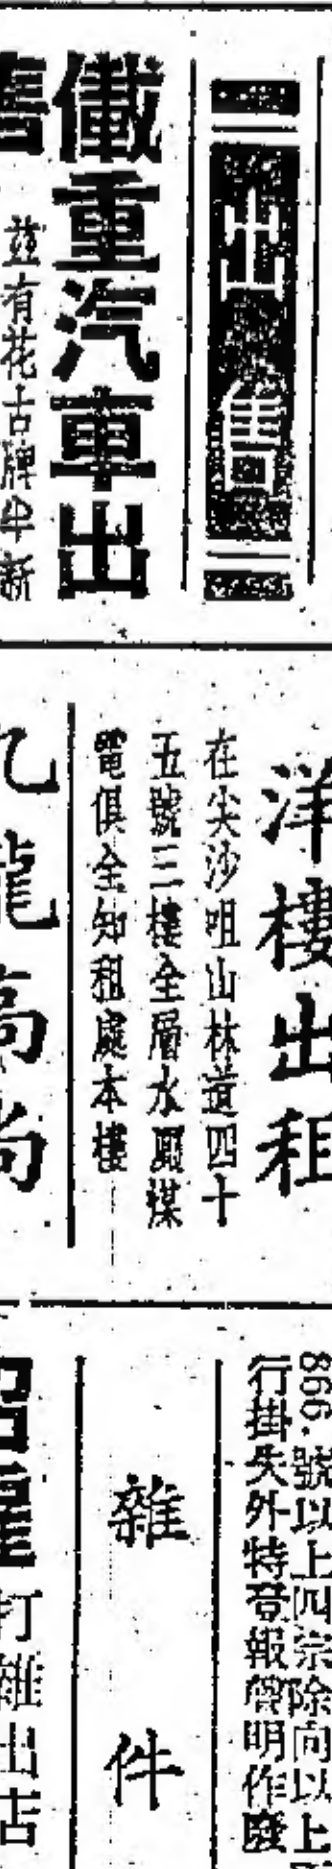 出售
儎重汽車出
茲有花士牌半新
洋樓出租
在尖沙咀山林道四十
五號三樓全層水廁煤
電俱全知租處本樓
九龍高尚
866.號以上四宗除向以上
行掛失外特登報聲明作廢
雜件
打雜出店